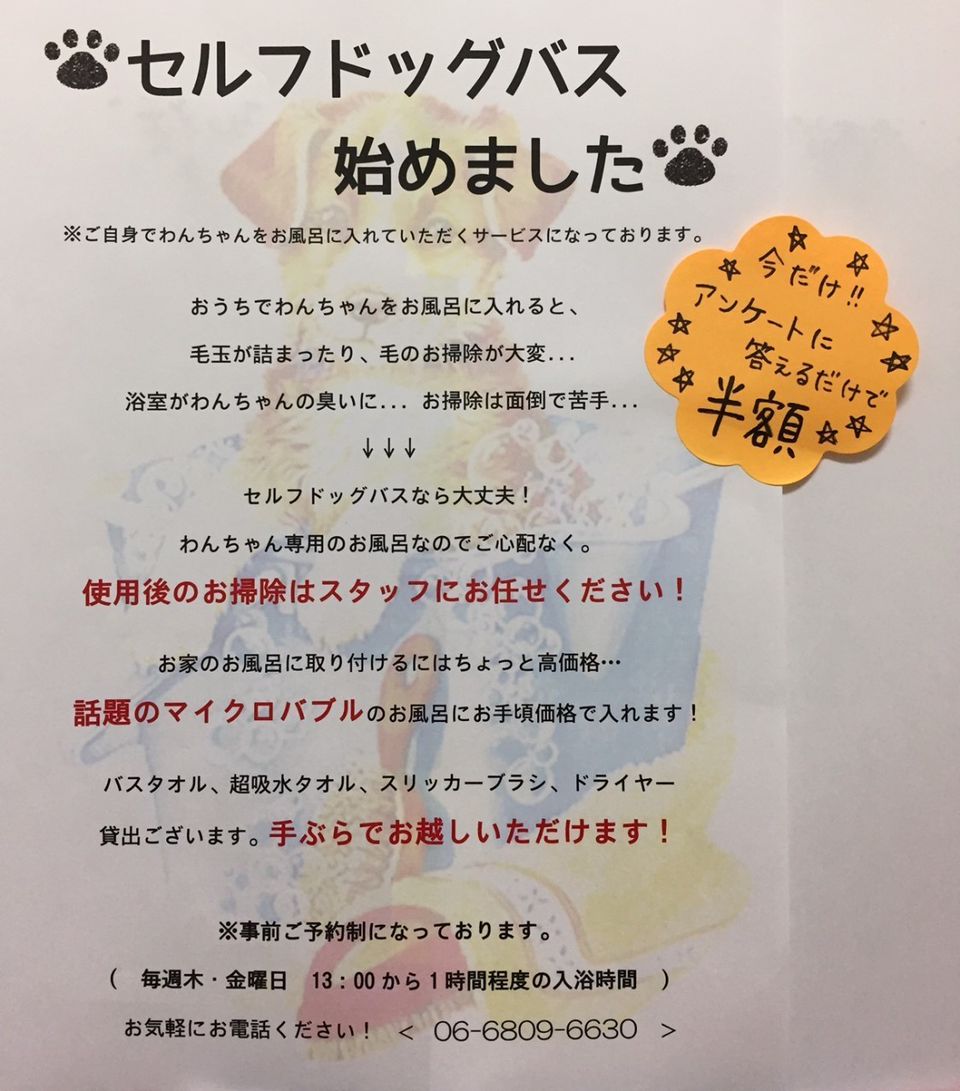 セルフドッグバス
始めました
※ご自身でわんちゃんをお風呂に入れていただくサービスになっております。
今だけ!!
アンケートに
答えるだけで
半額
おうちでわんちゃんをお風呂に入れると、
毛玉が詰まったり、毛のお掃除が大変...
浴室がわんちゃんの臭いに... お掃除は面倒で苦手...
↓↓↓
セルフドッグバスなら大丈夫！
わんちゃん専用のお風呂なのでご心配なく。
使用後のお掃除はスタッフにお任せください！
お家のお風呂に取り付けるにはちょっと高価格…
話題のマイクロバブルのお風呂にお手頃価格で入れます！
バスタオル、超吸水タオル、スリッカーブラシ、ドライヤー
貸出ございます。手ぶらでお越しいただけます！
※事前ご予約制になっております。
（　毎週木・金曜日　13：00から1時間程度の入浴時間　）
お気軽にお電話ください！　＜　06-6809-6630　＞